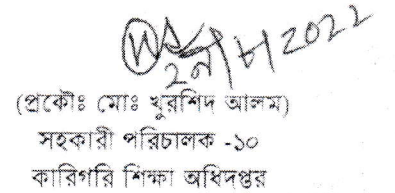 ২৭/৮/2022
(প্রকৌঃ মোঃ খুরশিদ আলম)
সহকারী পরিচালক -১০
কারিগরি শিক্ষা অধিদপ্তর